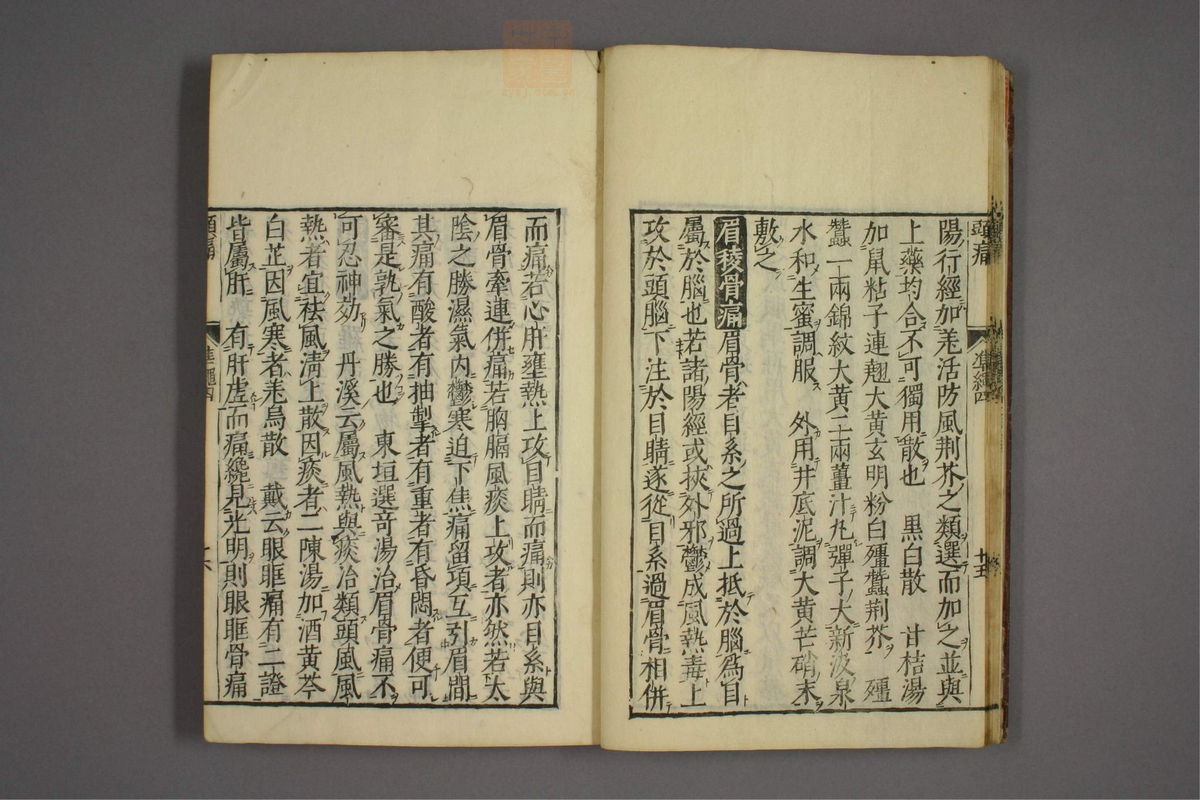 頭痛
陽行經加羗活防風荆芥之類選而加之並與
上藥均合不可獨用散也　黒白散　甘桔湯
加鼠粘子連翹大黄玄明粉白殭蠶荆芥　殭
蠶一兩錦紋大黄二兩薑汁丸彈子大新汲泉
水和生蜜調服　外用井底泥調大黄芒硝末
敷之
眉稜骨痛眉骨者目系之所過上抵於腦爲目
屬於腦也若諸陽經或挾外邪鬱成風熱毒上
攻於頭腦下注於目睛遂從目系過眉骨相併
而痛若心肝壅熱上攻目睛而痛則亦目系與
眉骨牽連併痛若胸膈風痰上攻者亦然若太
陰之勝濕氣内鬱寒迫下焦痛留項互引眉間
其痛有酸者有抽掣者有重者有昏悶者便可
審是孰氣之勝也　東垣選竒湯治眉骨痛不
可忍神効　丹溪云屬風熱與痰治類頭風風
熱者宜祛風淸上散因痰者二陳湯加酒黄芩
白芷因風寒者羌烏散　戴云眼眶痛有二證
皆屬肝　有肝虚而痛纔見光明則眼眶骨痛
頭痛
準繩四